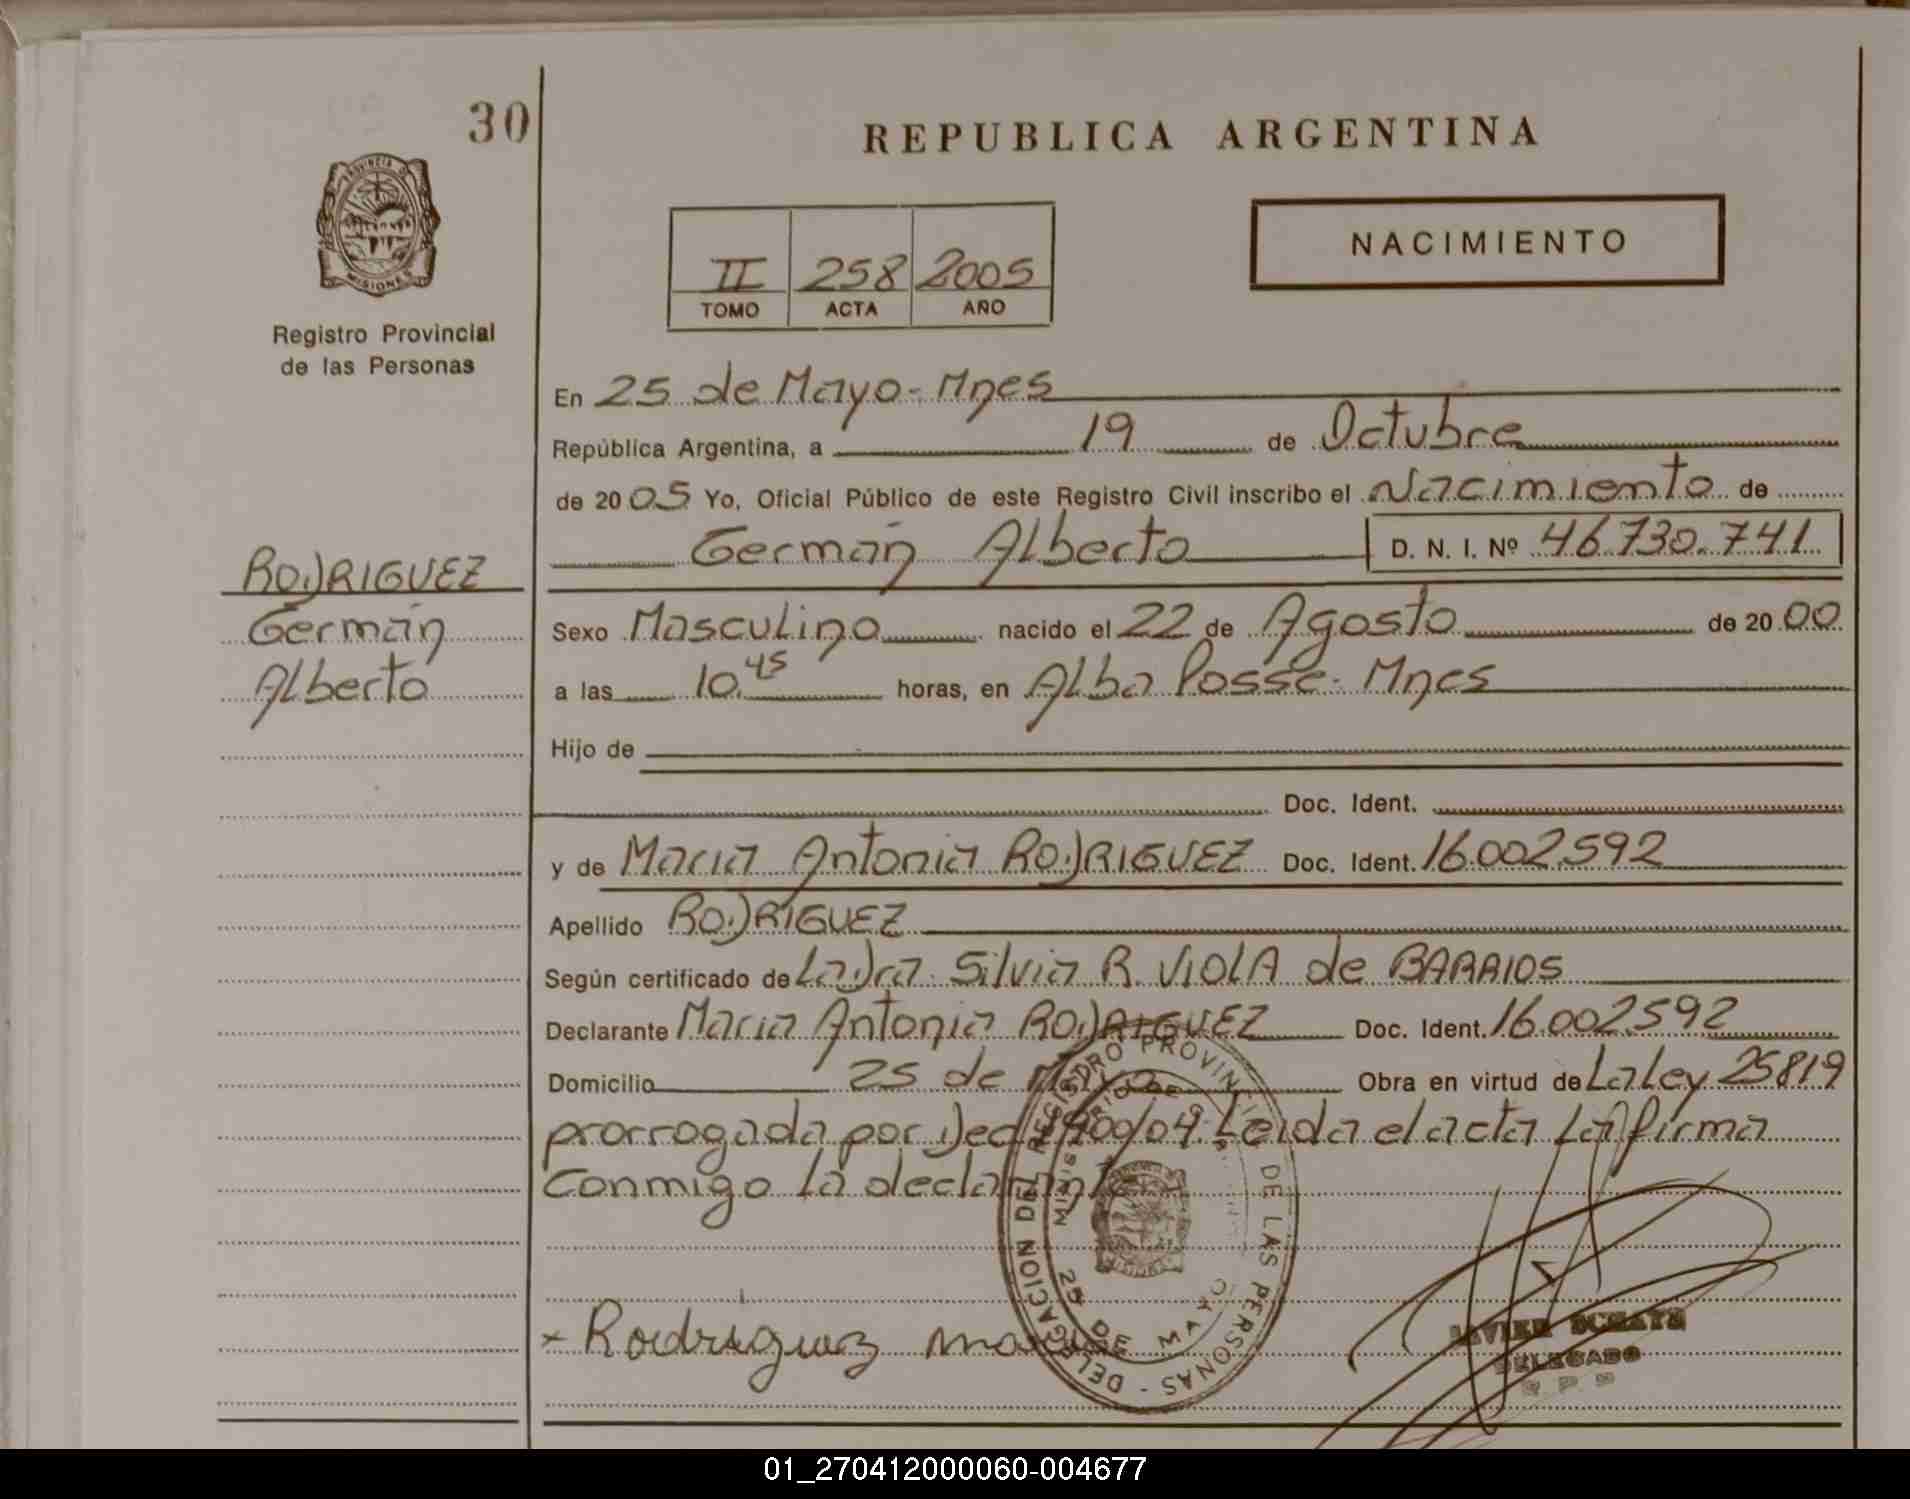 30
REPUBLICA ARGENTINA
PROVINCIA DE
MISIONES
Registro Provincial
de las Personas
II 258 2005
TOMO ACTA AÑO
NACIMIENTO
En 25 de Mayo - Mnes
República Argentina, a 19 de Octubre
de 2005 Yo, Oficial Público de este Registro Civil inscribo el Nacimiento de
Germán Alberto D. N. I. Nº 46.730.741
RODRIGUEZ
Germán
Alberto
Sexo Masculino nacido el 22 de Agosto de 2000
a las 10.45 horas, en Alba Posse - Mnes
Hijo de
Doc. Ident.
y de Maria Antonia RODRIGUEZ Doc. Ident. 16.002.592
Apellido RODRIGUEZ
Según certificado de La Dra. Silvia R. VIOLA de BARRIOS
Declarante Maria Antonia RODRIGUEZ Doc. Ident. 16.002.592
Domicilio 25 de Mayo Obra en virtud de La Ley 25819
prorrogada por Dec. 1900/04. Leida el acta La firma
Conmigo la declarante
x Rodriguez maria
DELEGACION DEL REGISTRO PROVINCIAL DE LAS PERSONAS -
25 DE MAYO
JAVIER
DELEGADO
01_270412000060-004677